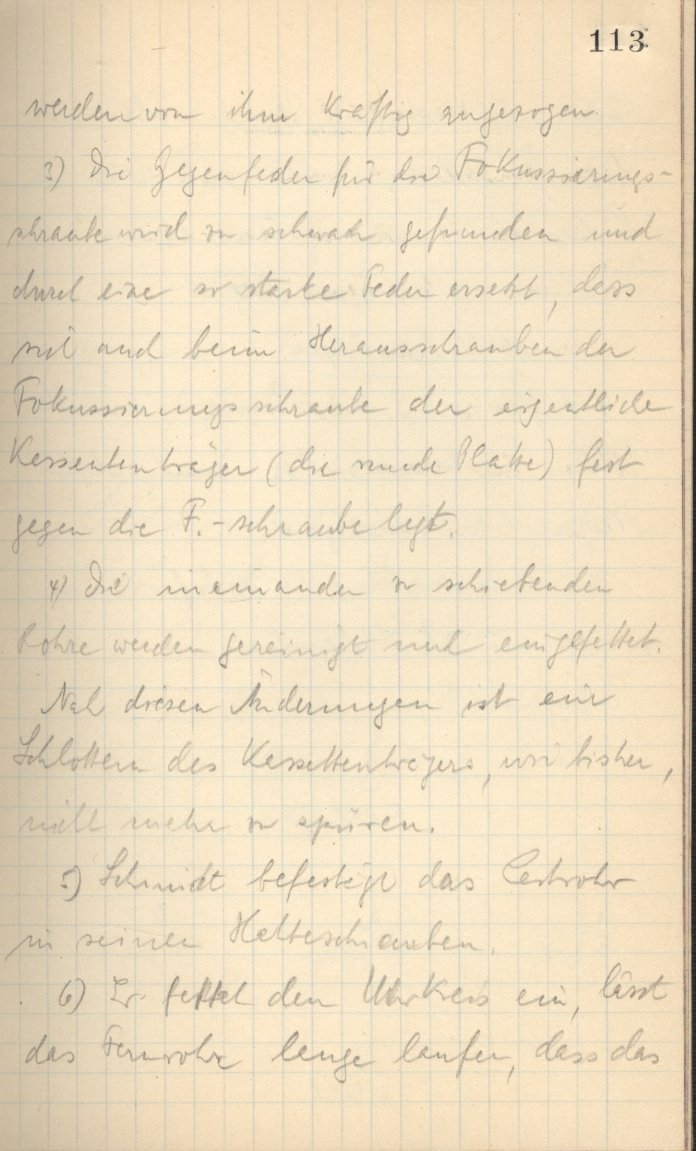 113
werden von ihm kräftig angezogen.
3) Die Gegenfeder für die Fokussierungs-
schraube wird zu schwach gefunden und
durch eine so starke Feder ersetzt, dass
sich auch beim Herausschrauben der
Fokussierungsschraube der eigentliche
Kassettenträger (die runde Platte) fest
gegen die F.-schraube legt.
4) Die ineinander zu schiebenden
Rohre werden gereinigt und eingefettet.
Nach diesen Änderungen ist ein
Schlottern des Kassettenträgers, wie bisher,
nicht mehr zu spüren.
5) Schmidt befestigt das Leitrohr
in seinen Halteschrauben.
6) Er fettet den Uhrkreis ein, lässt
das Fernrohr lange laufen, dass das